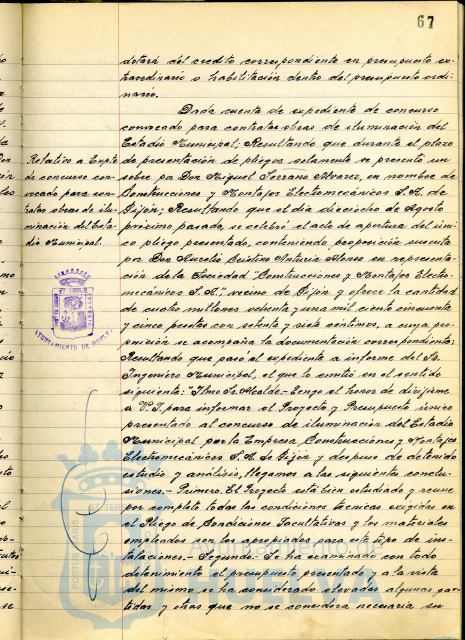 67
dotará del credito correspondiente en presupuesto ex-
traordinario o habilitación dentro del presupuesto ordi-
nario.
Dada cuenta de expediente de concurso
convocado para contratar obras de iluminación del
Estadio Municipal; Resultando que durante el plazo
de presentación de pliegos solamente se presentó un
sobre por Don Miguel Serrano Alvarez, en nombre de
Construcciones y Montajes Electromecánicos S.A. de
Gijón; Resultando que el dia dieciocho de Agosto
próximo pasado, se celebró el acto de apertura del úni-
co pliego presentado, conteniendo proposición suscrita
por Don Aurelio Avelino Antuña Alonso en representa-
ción de la Sociedad "Construcciones y Montajes Electro-
mecánicos S.A.", vecino de Gijón y ofrece la cantidad
de cuatro millones ochenta y una mil ciento cincuenta
y cinco pesetas con setenta y siete centimos, a cuya pro-
posición se acompaña la documentación correspondiente;
Resultando que pasó el expediente a informe del Sr.
Ingeniero Municipal, el que lo emitió en el sentido
siguiente: "Ilmo Sr. Alcalde.- Tengo el honor de dirijirme
a V.I. para informar el Proyecto y Presupuesto único
presentado al concurso de iluminación del Estadio
Municipal por la Empresa Construcciones y Montajes
Electromecánicos S.A. de Gijón y despues de detenido
estudio y análisis, llegamos a las siguientes conclu-
siones.- Primero. El Proyecto está bien estudiado y reune
por completo todas las condiciones técnicas exigidas en
el Pliego de Condiciones Facultativas y los materiales
empleados son los apropiados para este tipo de ins-
talaciones.- Segundo: Se ha examinado con todo
detenimiento el presupuesto presentado y a la vista
del mismo se ha considerado elevadas algunas par-
tidas y otras que no se considera necesaria su
Relativo a Expte
de concurso con-
vocado para con-
tratar obras de ilu-
minación del Esta-
dio Municipal.
AYUNTAMIENTO DE HUELVA